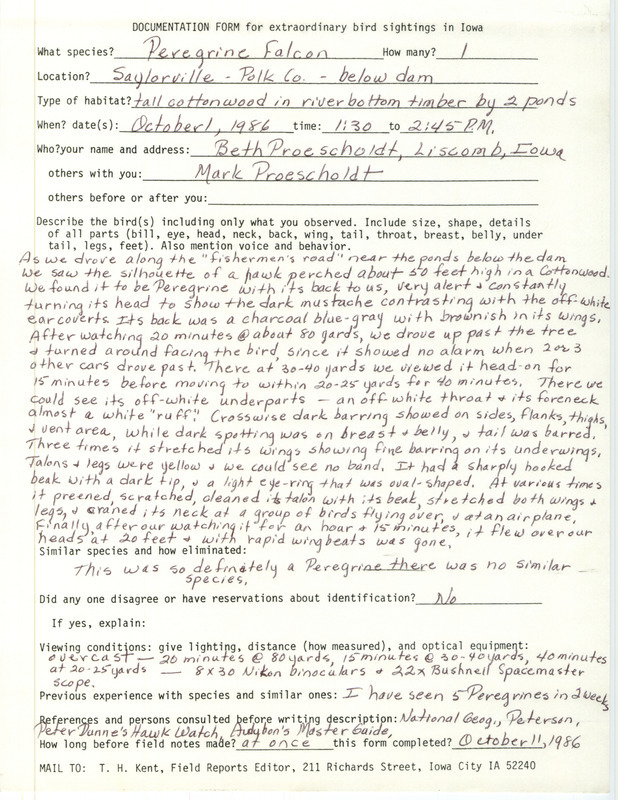 DOCUMENTATION FORM for extraordinary bird sightings in Iowa
What species? Peregrine Falcon How many? 1
Location? Saylorville - Polk Co. - below dam
Type of habitat? tall cottonwood in riverbottom timber by 2 ponds
When? date(s): October 1, 1986 time: 1:30 to 2:45 P.M.
Who? your name and address: Beth Proescholdt, Liscomb, Iowa
others with you: Mark Proescholdt
others before or after you:
Describe the bird(s) including only what you observed. Include size, shape, details
of all parts (bill, eye, head, neck, back, wing, tail, throat, breast, belly, under
tail, legs, feet). Also mention voice and behavior.
As we drove along the "fishermen's road" near the ponds below the dam
we saw the silhouette of a hawk perched about 50 feet high in a Cottonwood.
We found it to be Peregrine with its back to us, very alert & constantly
turning its head to show the dark mustache contrasting with the off-white
ear coverts. Its back was a charcoal blue-gray with brownish in its wings.
After watching 20 minutes @ about 80 yards, we drove up past the tree
& turned around facing the bird, since it showed no alarm when 2 or 3
other cars drove past. There at 30-40 yards we viewed it head-on for
15 minutes before moving to within 20-25 yards for 40 minutes. There we
could see its off-white underparts - an off white throat & its foreneck
almost a white "ruff." Crosswise dark barring showed on sides, flanks, thighs,
& vent area, while dark spotting was on breast & belly, & tail was barred.
Three times it stretched its wings showing fine barring on its underwings.
Talons & legs were yellow & we could see no band. It had a sharply hooked
beak with a dark tip, & a light eye-ring that was oval-shaped. At various times
it preened, scratched, cleaned its talon with its beak, stretched both wings &
legs, & craned its neck at a group of birds flying over, & at an airplane.
Finally, after our watching it for an hour & 15 minutes, it flew over our
heads at 20 feet & with rapid wingbeats was gone.
Similar species and how eliminated:
This was so definitely a Peregrine there was no similar
species.
Did any one disagree or have reservations about identification? No
If yes, explain:
Viewing conditions: give lighting, distance (how measured), and optical equipment:
overcast — 20 minutes @ 80 yards, 15 minutes @ 30-40 yards, 40 minutes
at 20-25 yards — 8x30 Nikon binoculars & 22x Bushnell Spacemaster
scope.
Previous experience with species and similar ones: I have seen 5 Peregrines in 2 weeks
References and persons consulted before writing description: National Geog., Peterson,
Peter Dunne's Hawk Watch, Audubon's Master Guide,
How long before field notes made? at once this form completed? October 11, 1986
MAIL TO: T. H. Kent, Field Reports Editor, 211 Richards Street, Iowa City IA 52240